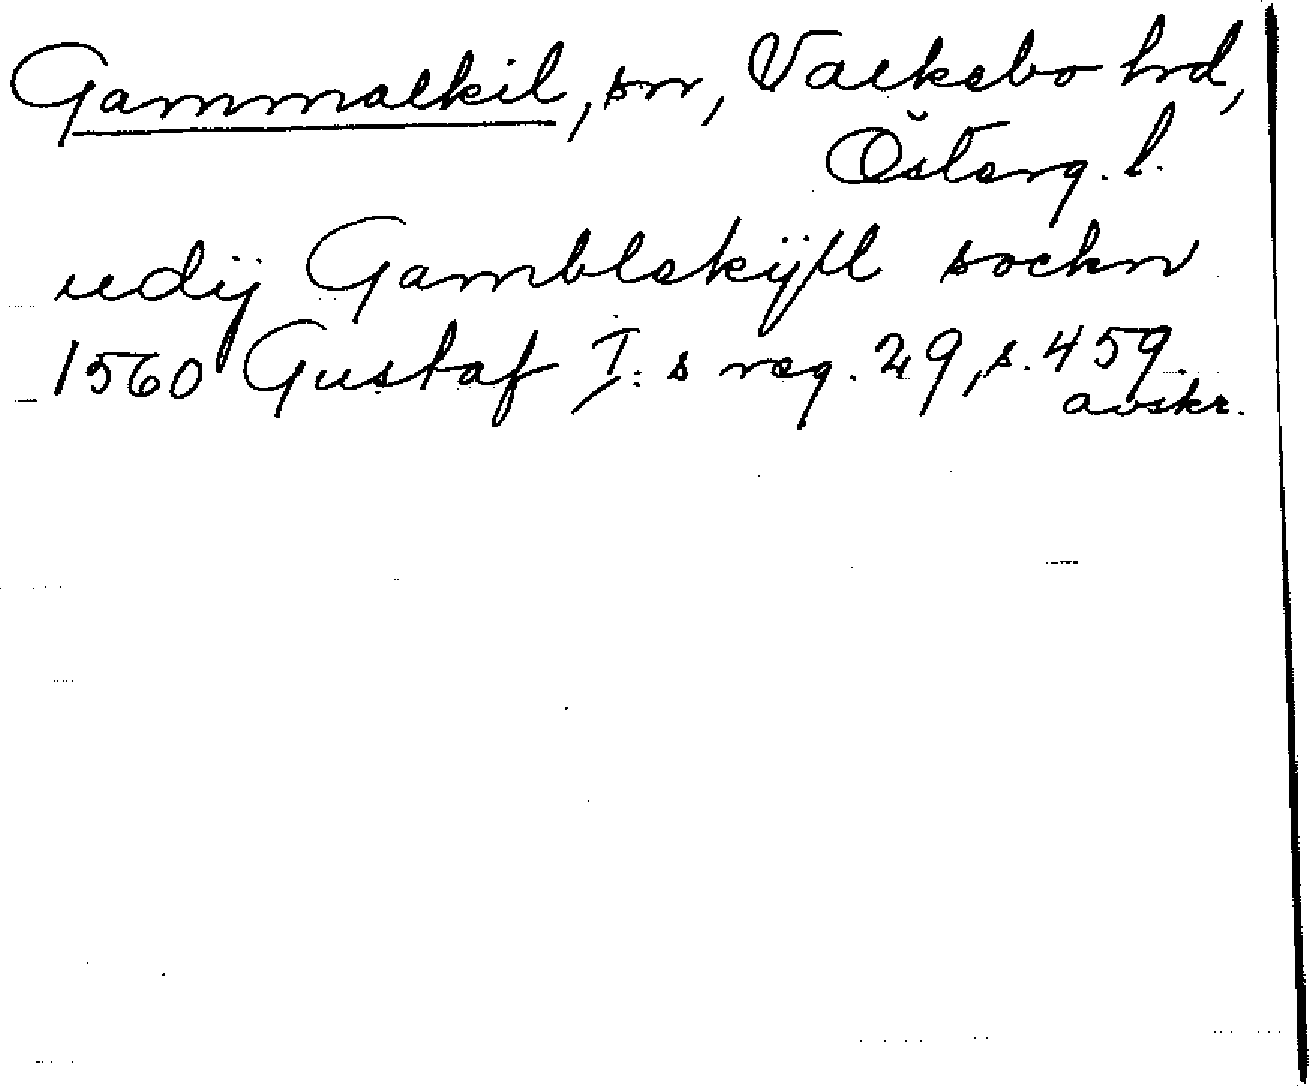 Gammalkil, sn, Valkebo hd,
Österg. l.
udij Gamblekijll sockn
1560 Gustaf I:s reg. 29, s. 459.
avskr.